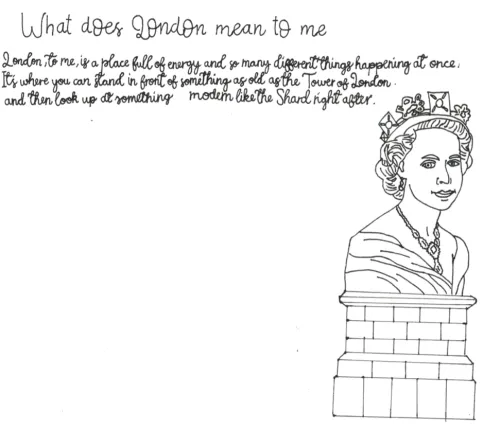 What does London mean to me
London, to me, is a place full of energy and so many different things happening at once.
It's where you can stand in front of something as old as the Tower of London.
and then look up at something modern like the Shard right after.